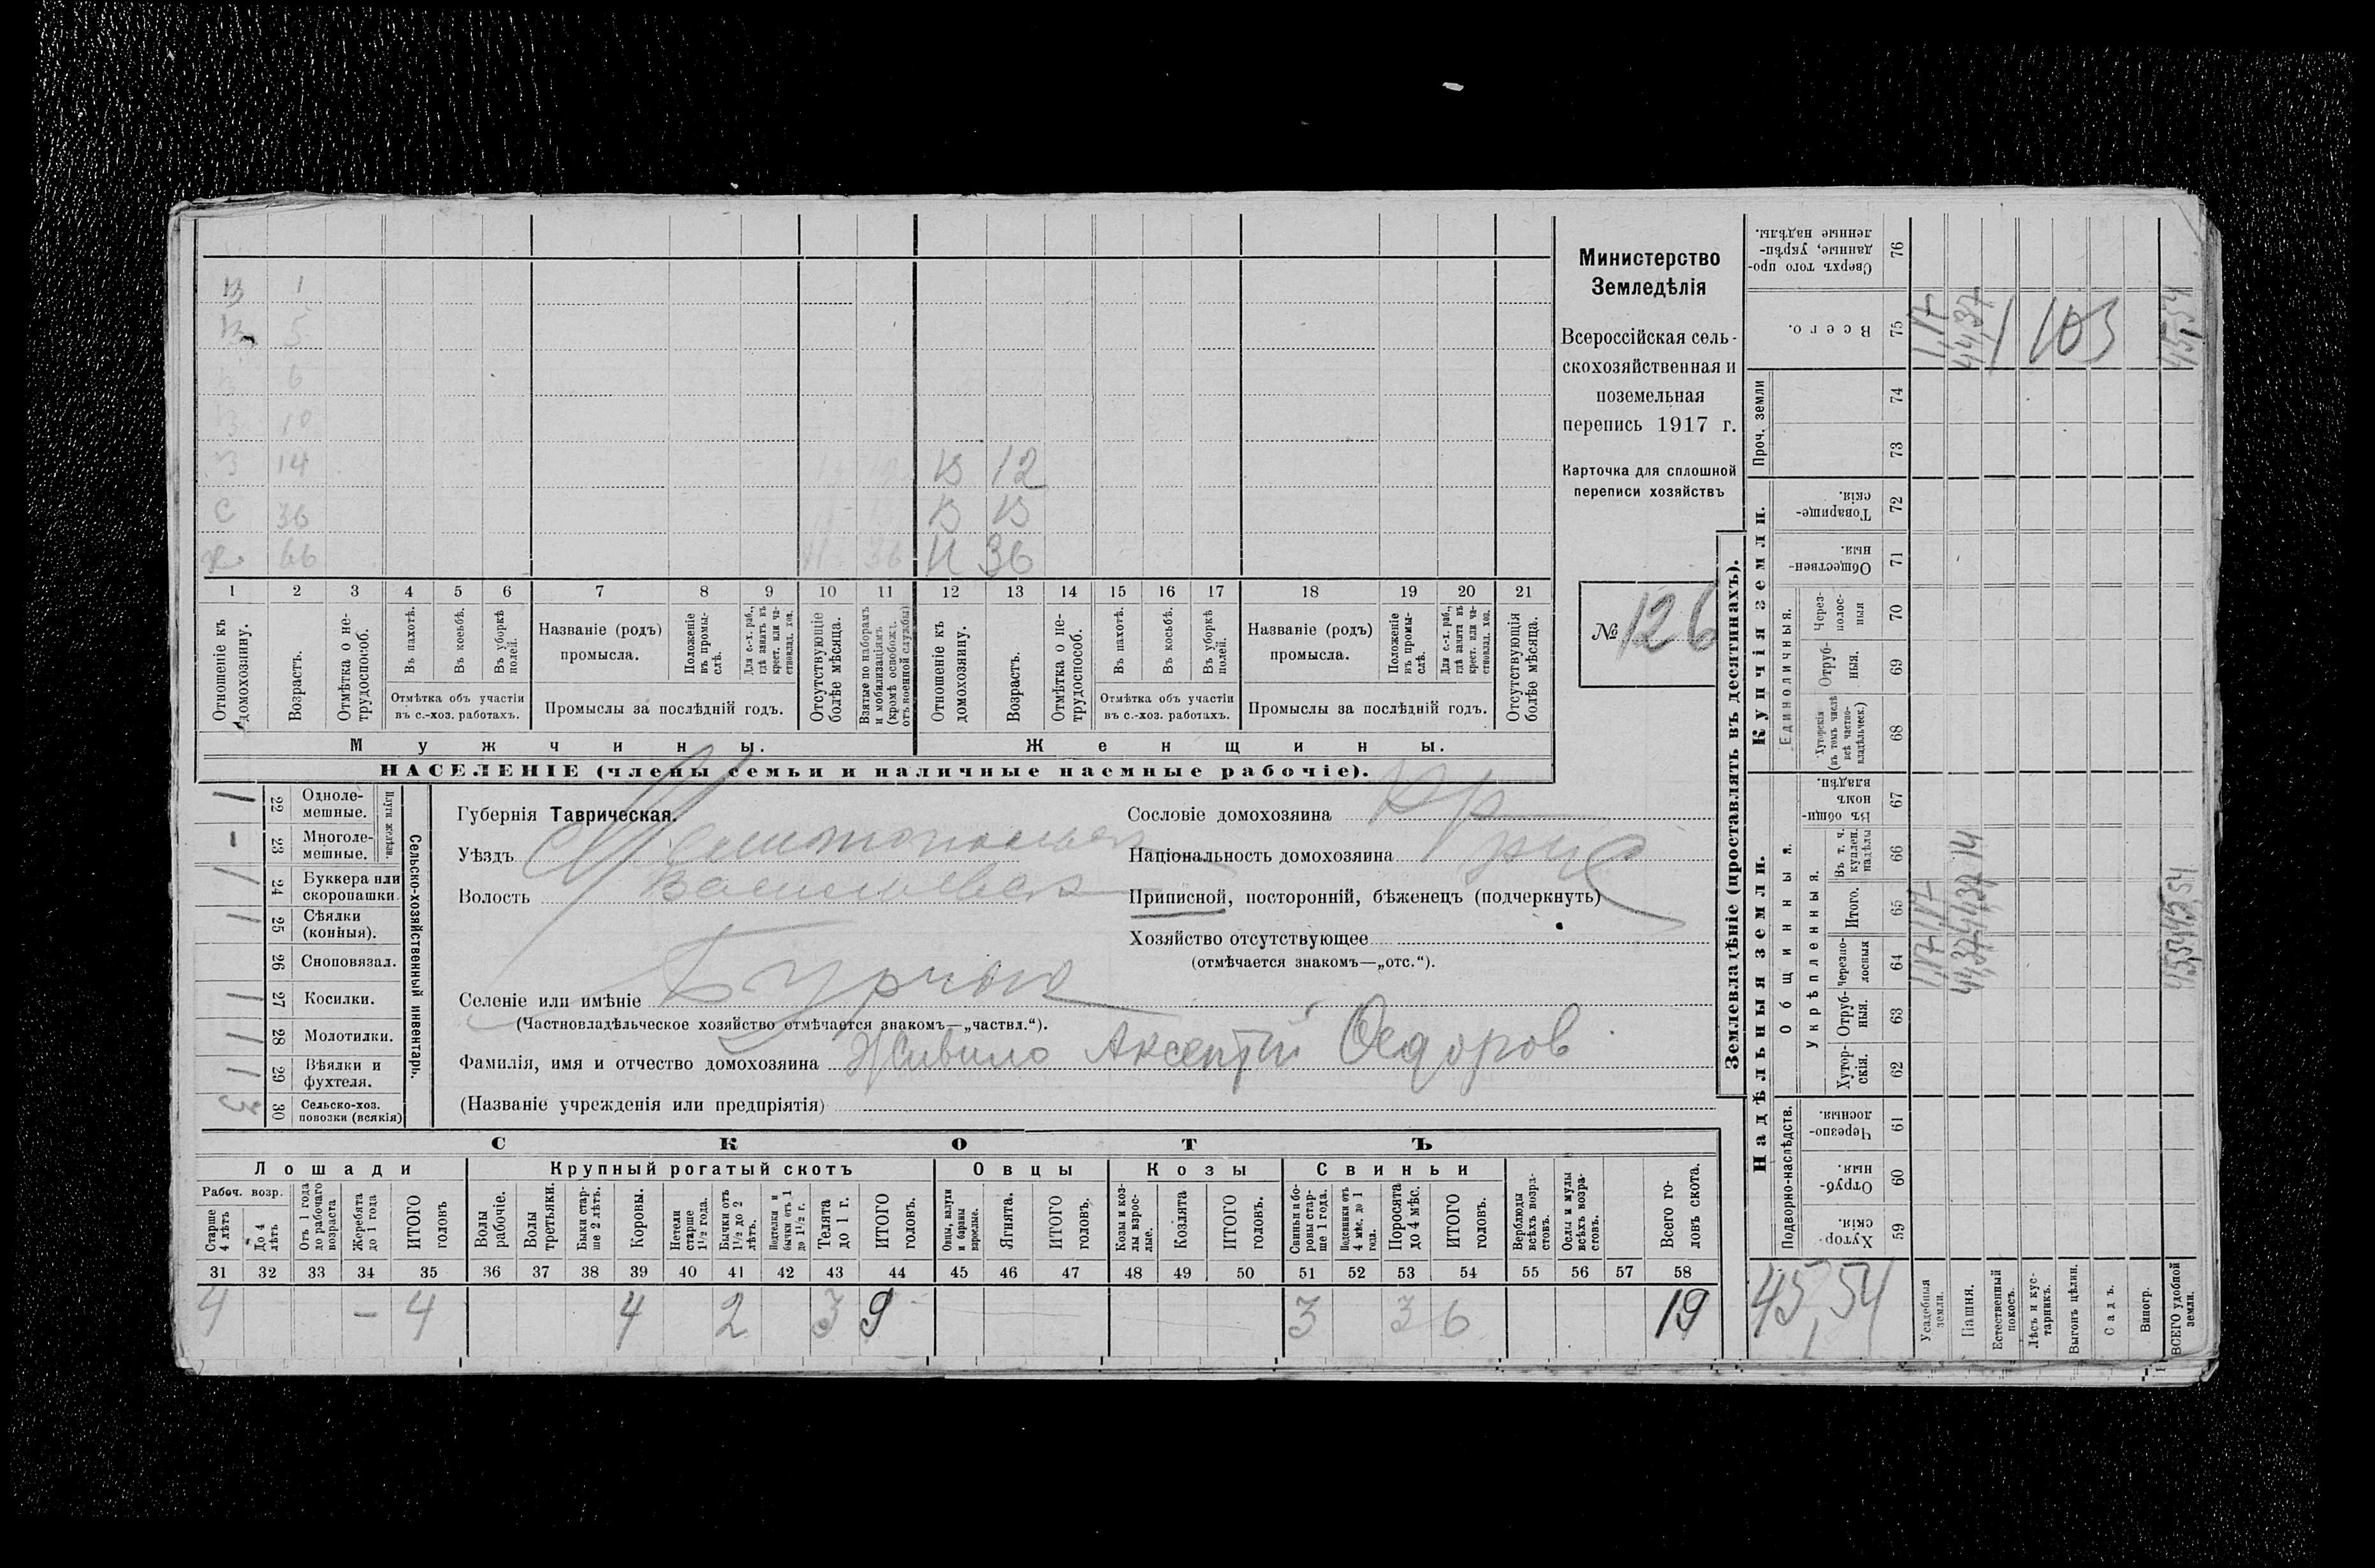 В 1
В 5
В 6
В 10
В 14 В 12
С 36 В
Х 66 Н 36 Н 36
1 2 3 4 5 6 7 8 9 10 11 12 13 14 15 16 17 18 19 20 21
Отношеніе къ домохозяину.
Возрастъ.
Отмѣтка о не-
трудоспособ.
Въ пахотѣ.
Въ косьбѣ.
Въ уборкѣ
полей.
Отмѣтка объ участіи
въ с.-хоз. работахъ.
Названіе (родъ)
промысла.
Положеніе
въ промы-
слѣ.
Для с.-х. раб.,
гдѣ занятъ въ
крест. или ча-
стновлад. хоз.
Промыслы за послѣдній годъ.
Отсутствующіе
болѣе мѣсяца.
Взятые по наборамъ
и мобилизаціямъ
(кромѣ освобожд.
отъ военной службы)
Отношеніе къ
домохозяину.
Возрастъ.
Отмѣтка о не-
трудоспособ.
Въ пахотѣ.
Въ косьбѣ.
Въ уборкѣ
полей.
Отмѣтка объ участіи
въ с.-хоз. работахъ.
Названіе (родъ)
промысла.
Положеніе
въ промы-
слѣ.
Для с.-х. раб.,
гдѣ занята въ
крест. или ча-
стновлад. хоз.
Промыслы за послѣдній годъ.
Отсутствующія
болѣе мѣсяца.
Мужчины.
Женщины.
НАСЕЛЕНІЕ (члены семьи и наличные наемные рабочіе).
Министерство
Земледѣлія
Всероссійская сель-
скохозяйственная и
поземельная
перепись 1917 г.
Карточка для сплошной
переписи хозяйствъ
№ 126
1 22 Одноле-
мешные.
- 23 Многоле-
мешные.
Плуги желѣзн.
1 24 Буккера или
скоропашки.
1 25 Сѣялки
(конныя).
26 Сноповязал.
1 27 Косилки.
1 28 Молотилки.
1 29 Вѣялки и
фухтеля.
3 30 Сельско-хоз.
повозки (всякія)
Сельско-хозяйственный инвентарь.
Губернія Таврическая.
Уѣздъ Мелитопольск
Волость Васильевск
Селеніе или имѣніе Бурчак
(Частновладѣльческое хозяйство отмѣчается знакомъ—„частвл.“).
Фамилія, имя и отчество домохозяина Живило Аксентій Федоров
(Названіе учрежденія или предпріятія)
Сословіе домохозяина Кр
Національность домохозяина рус
Приписной, посторонній, бѣженецъ (подчеркнуть)
Хозяйство отсутствующее
(отмѣчается знакомъ—„отс.“).
СКОТЪ
Лошади
Рабоч. возр.
Старше
4 лѣтъ
До 4
лѣтъ
Отъ 1 года
до рабочаго
возраста
Жеребята
до 1 года
ИТОГО
головъ
Крупный рогатый скотъ
Волы
рабочіе.
Волы
третьяки.
Быки стар-
ше 2 лѣтъ.
Коровы.
Нетели
старше
1½ года.
Бычки отъ
1½ до 2
лѣтъ.
Подтелки и
бычки отъ 1
до 1½ г.
Телята
до 1 г.
ИТОГО
головъ.
Овцы
Овцы, валухи
и бараны
взрослые.
Ягнята.
ИТОГО
головъ.
Козы
Козы и коз-
лы взрос-
лые.
Козлята
ИТОГО
головъ.
Свиньи
Свиньи и бо-
ровы стар-
ше 1 года.
Подсвинки отъ
4 мѣс. до 1
года.
Поросята
до 4 мѣс.
ИТОГО
головъ.
Верблюды
всѣхъ возра-
стовъ.
Ослы и мулы
всѣхъ возра-
стовъ.
Всего го-
ловъ скота.
31 32 33 34 35 36 37 38 39 40 41 42 43 44 45 46 47 48 49 50 51 52 53 54 55 56 57 58
4 — 4 4 2 3 9 3 3 6 19
Землевладѣніе (проставлять въ десятинахъ).
Надѣльныя земли.
Купчія земли.
Проч. земли
Подворно-наслѣдств.
Общинныя.
Укрѣпленныя.
Единоличныя.
Хутор-
скія. 59
Отруб-
ныя. 60
Черезпо-
лосныя. 61
Хутор-
скія. 62
Отруб-
ныя. 63
Черезпо-
лосныя 64
Итого. 65
Въ т. ч.
куплен.
надѣлы 66
Въ общин-
номъ
владѣн. 67
Хуторскія
(въ томъ числѣ
всѣ частно-
владѣльческ.) 68
Отруб-
ныя. 69
Через-
полос-
ныя 70
Обществен-
ныя. 71
Товарище-
скія. 72
73
74
Всего. 75
Сверхъ того про-
данные, укрѣп-
ленные надѣлы. 76
45,54
Усадебныя
земли. 1,17 1,17 1,17
Пашня. 44,37 44,37 14 44,37
Естественный
покосъ.
Лѣсъ и кус-
тарникъ.
Выгонъ цѣлин.
Садъ.
Виногр.
ВСЕГО удобной
земли. 45,54 45,54 45,54
1 103